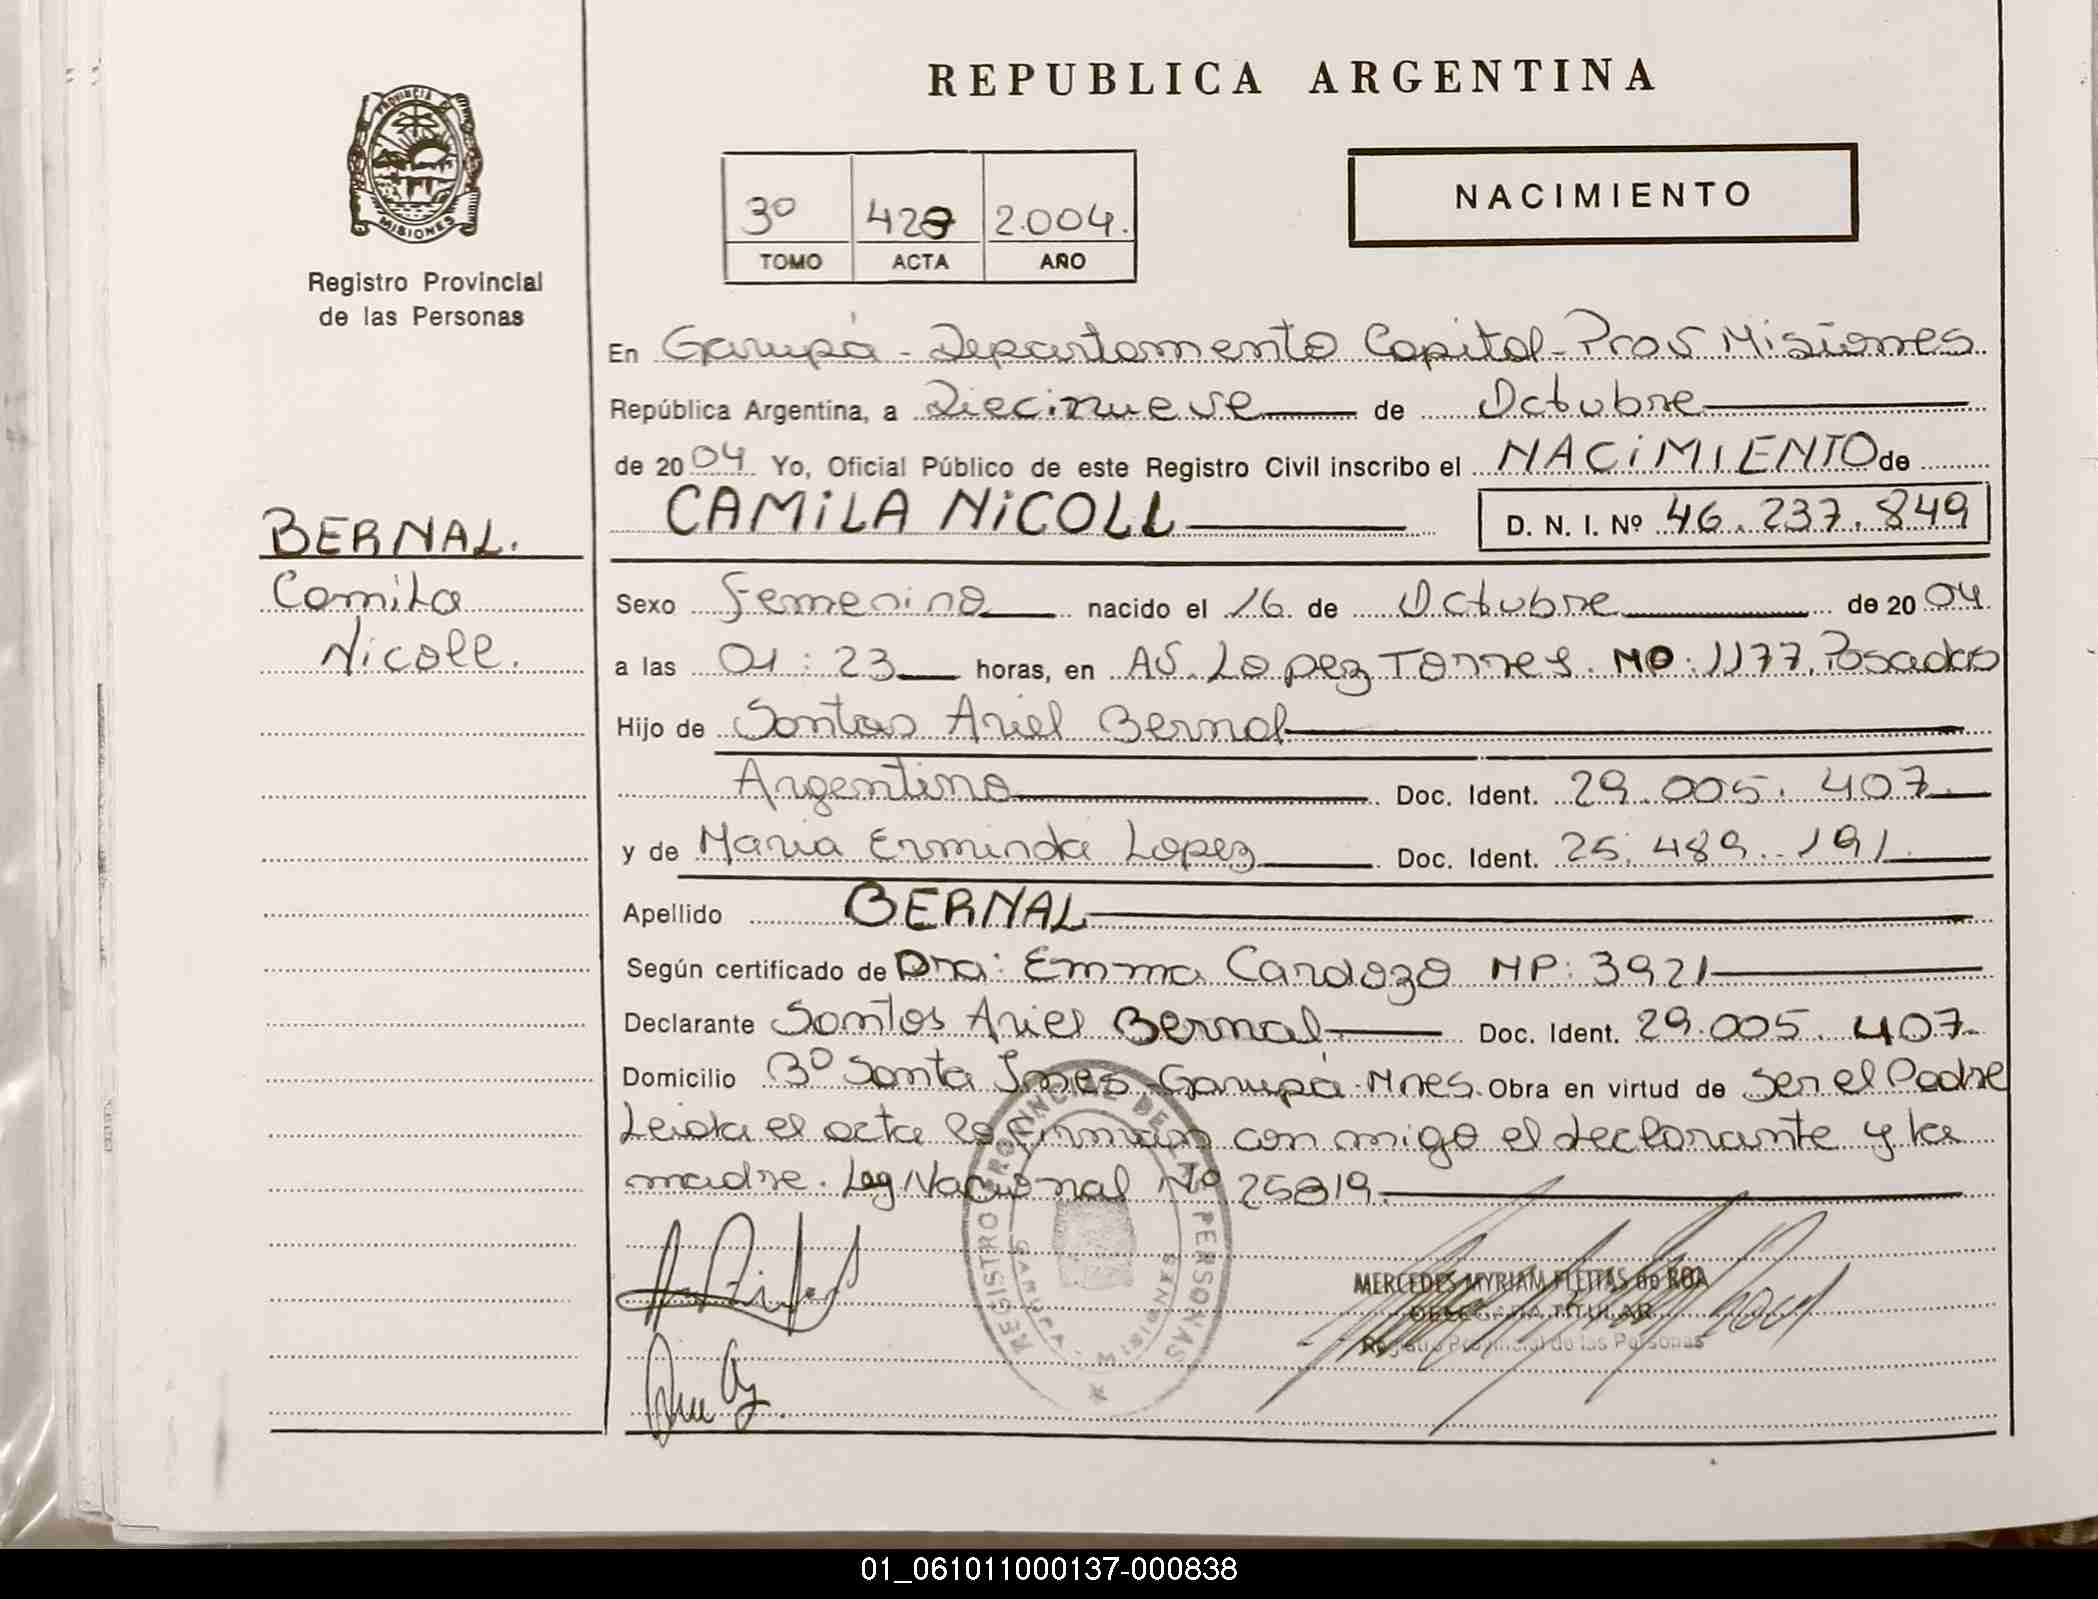 REPUBLICA ARGENTINA
PROVINCIA DE
MISIONES
Registro Provincial
de las Personas
3º 2.004.
TOMO ACTA AÑO
NACIMIENTO
En Garupá - Departamento Capital - Prov Misiones
República Argentina, a Diecinueve de Octubre
de 2004 Yo, Oficial Público de este Registro Civil inscribo el NACiMIENTO de
CAMiLA NiCOLL D. N. I. Nº 46.237.849
BERNAL.
Camila
Nicoll.
Sexo Femenino nacido el 16 de Octubre de 2004
a las 01:23 horas, en Av. Lopez Torres. NO: 1177. Posadas
Hijo de Santos Ariel Bernal
Argentino Doc. Ident. 29.005.407.
y de Maria Erminda Lopez Doc. Ident. 25.489.191.
Apellido BERNAL
Según certificado de Dra: Emma Cardozo MP: 3921
Declarante Santos Ariel Bernal Doc. Ident. 29.005.407.
Domicilio Bº Santa Ines, Garupá. Mnes. Obra en virtud de Ser el Padre
Leida el acta la firman con migo el declarante y la
madre. Leg Nacional Nº 25819.
REGISTRO PROVINCIAL DE LAS PERSONAS
MERCEDES MYRIAM FLEITAS de ROA
DELEGADA TITULAR
Registro Provincial de las Personas
01_061011000137-000838